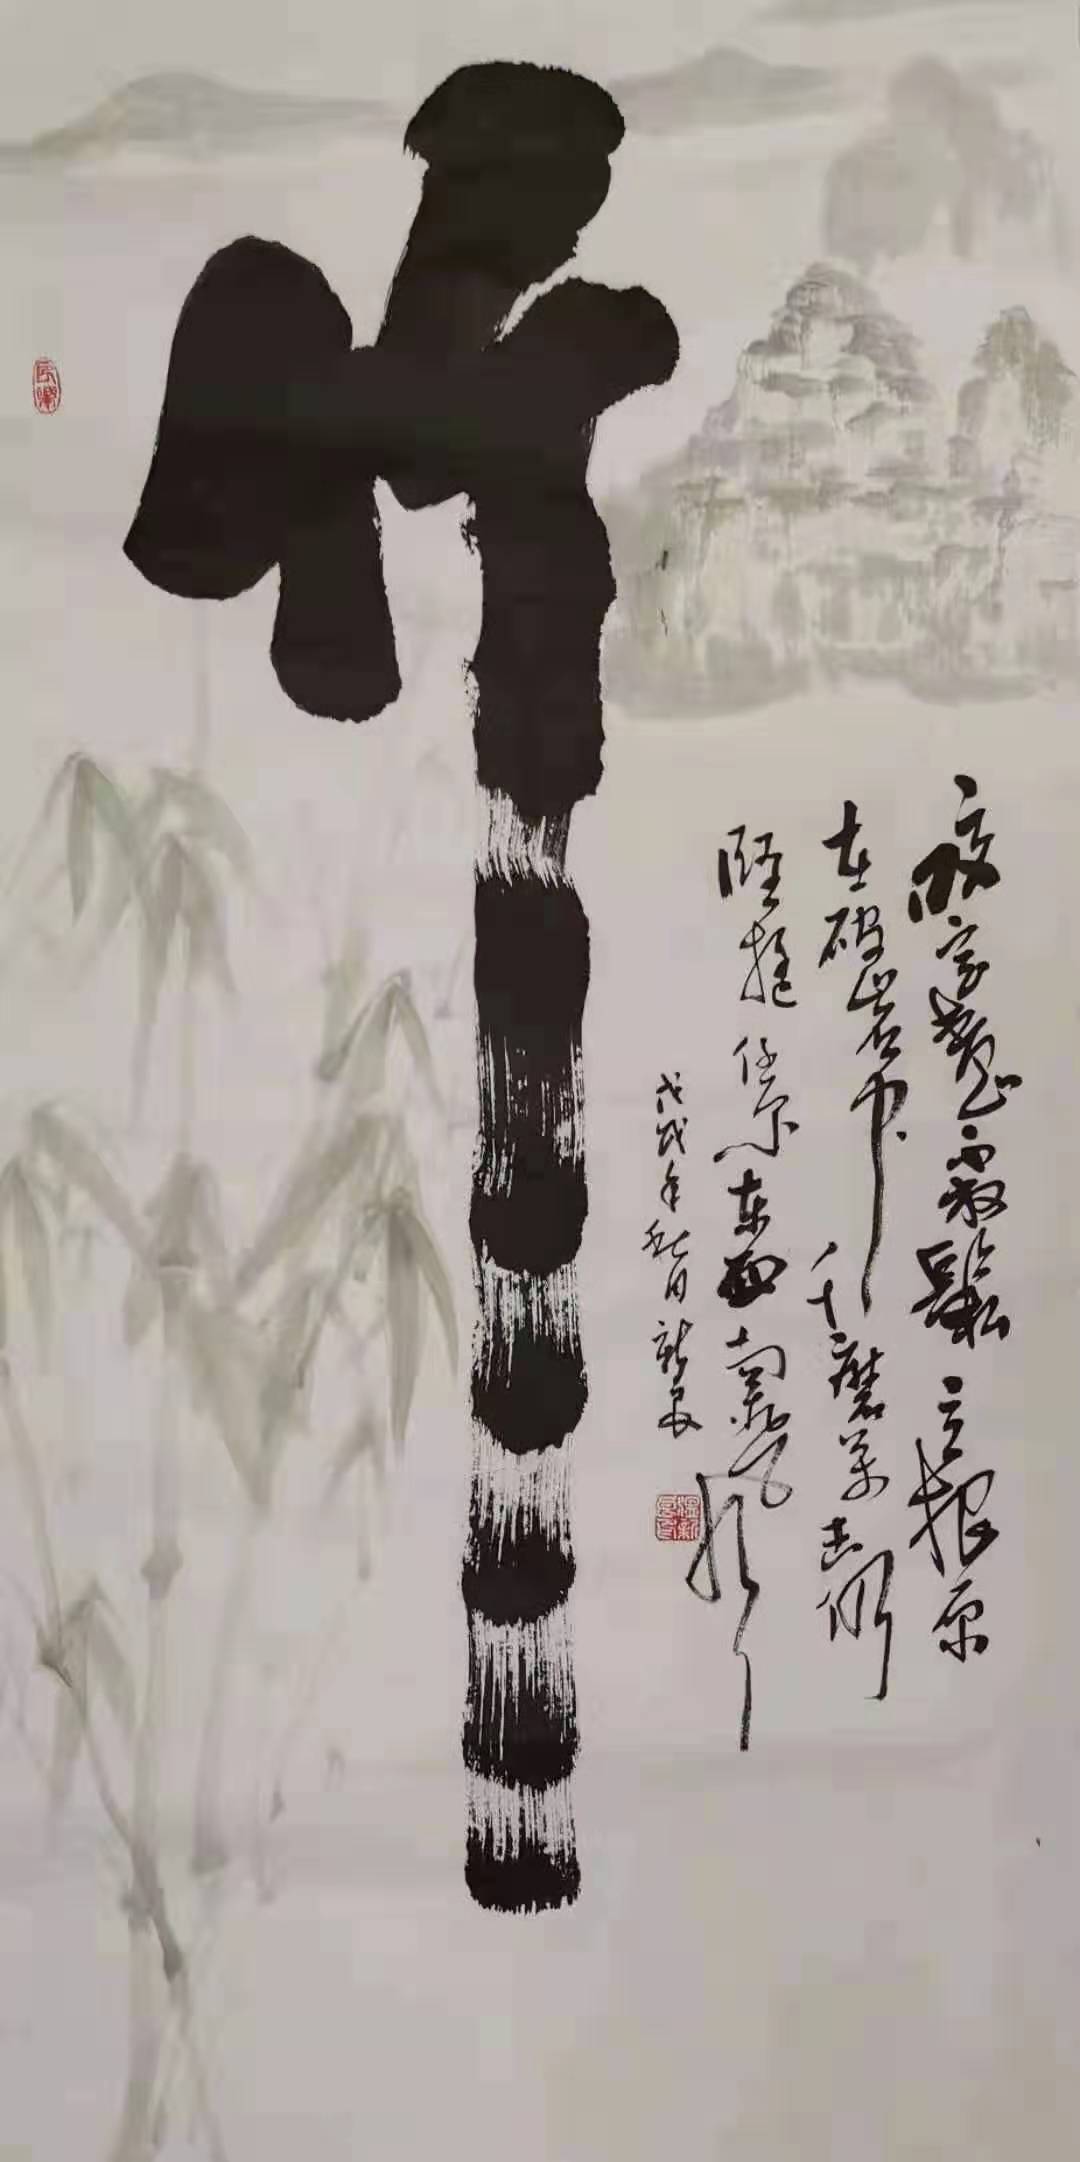 竹
咬定青山不放鬆立根原
在破岩中千磨万击仍
坚挺任尔东西南北风
戊戌年秋日新
温新